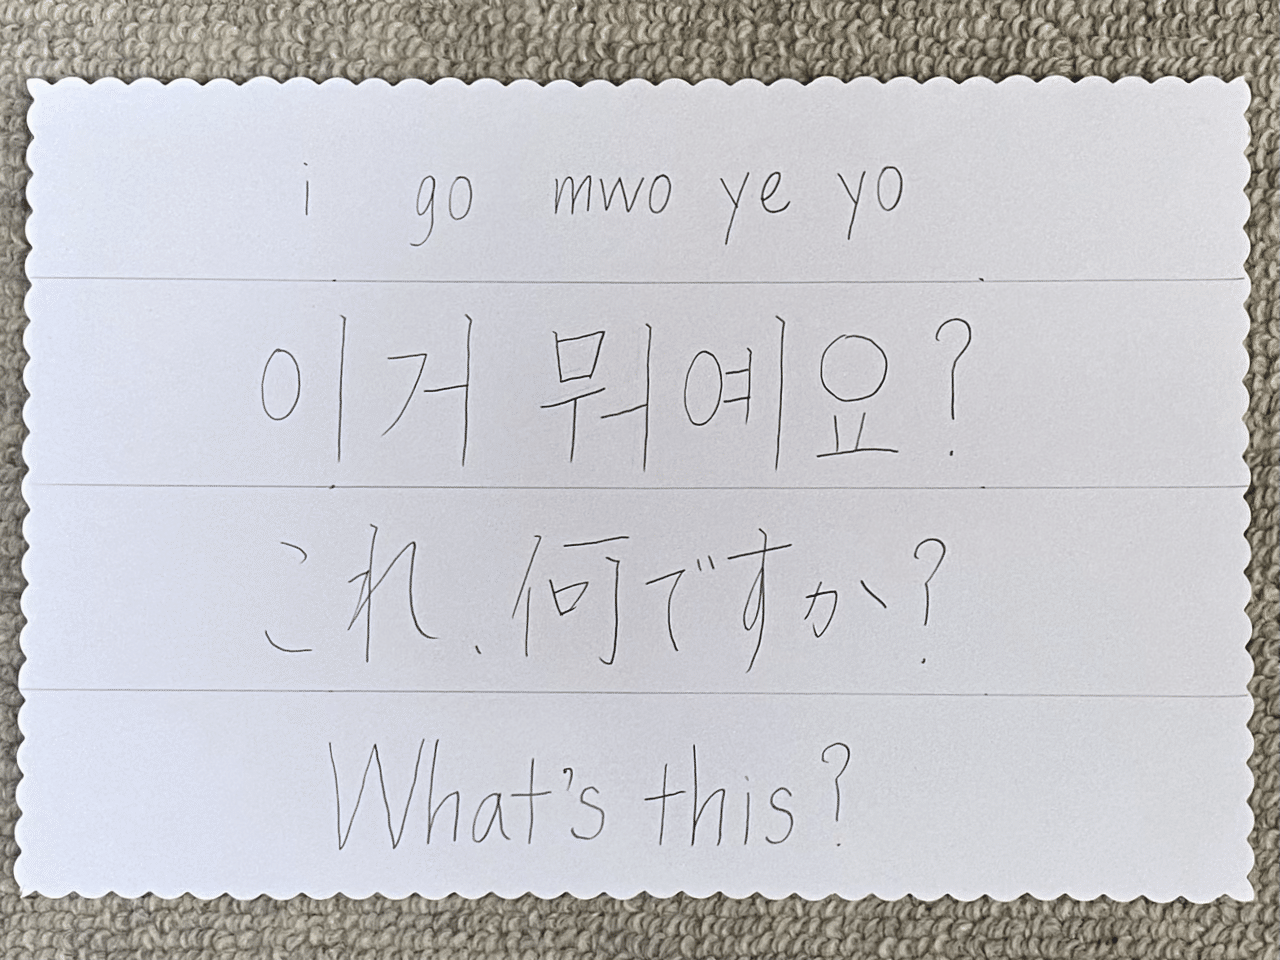 i go mwo ye yo
이거 뭐예요?
これ、何ですか?
What's this?